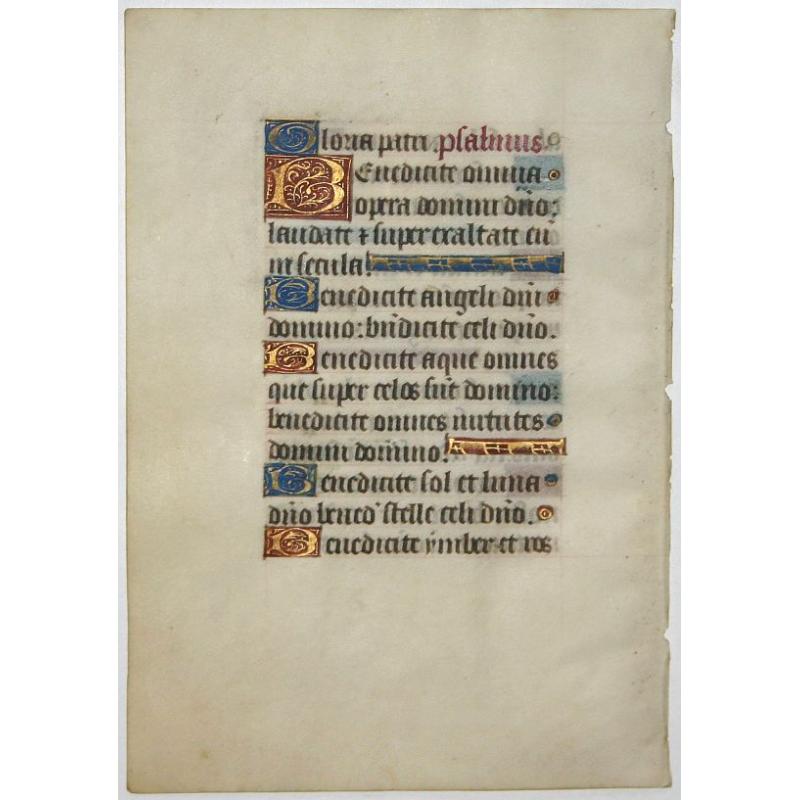 Gloria patri . psalmus.
BEnedicite omnia
opera domini dño:
laudate ⁊ superexaltate eũ
in secula.
Benedicite angeli dñi
domino: bñdicite celi dño.
Benedicite aque omnes
que super celos sũt domino:
benedicite omnes uirtutes
domini domino.
Benedicite sol et luna
dño bened' stelle celi dño.
Benedicite ymber et ros